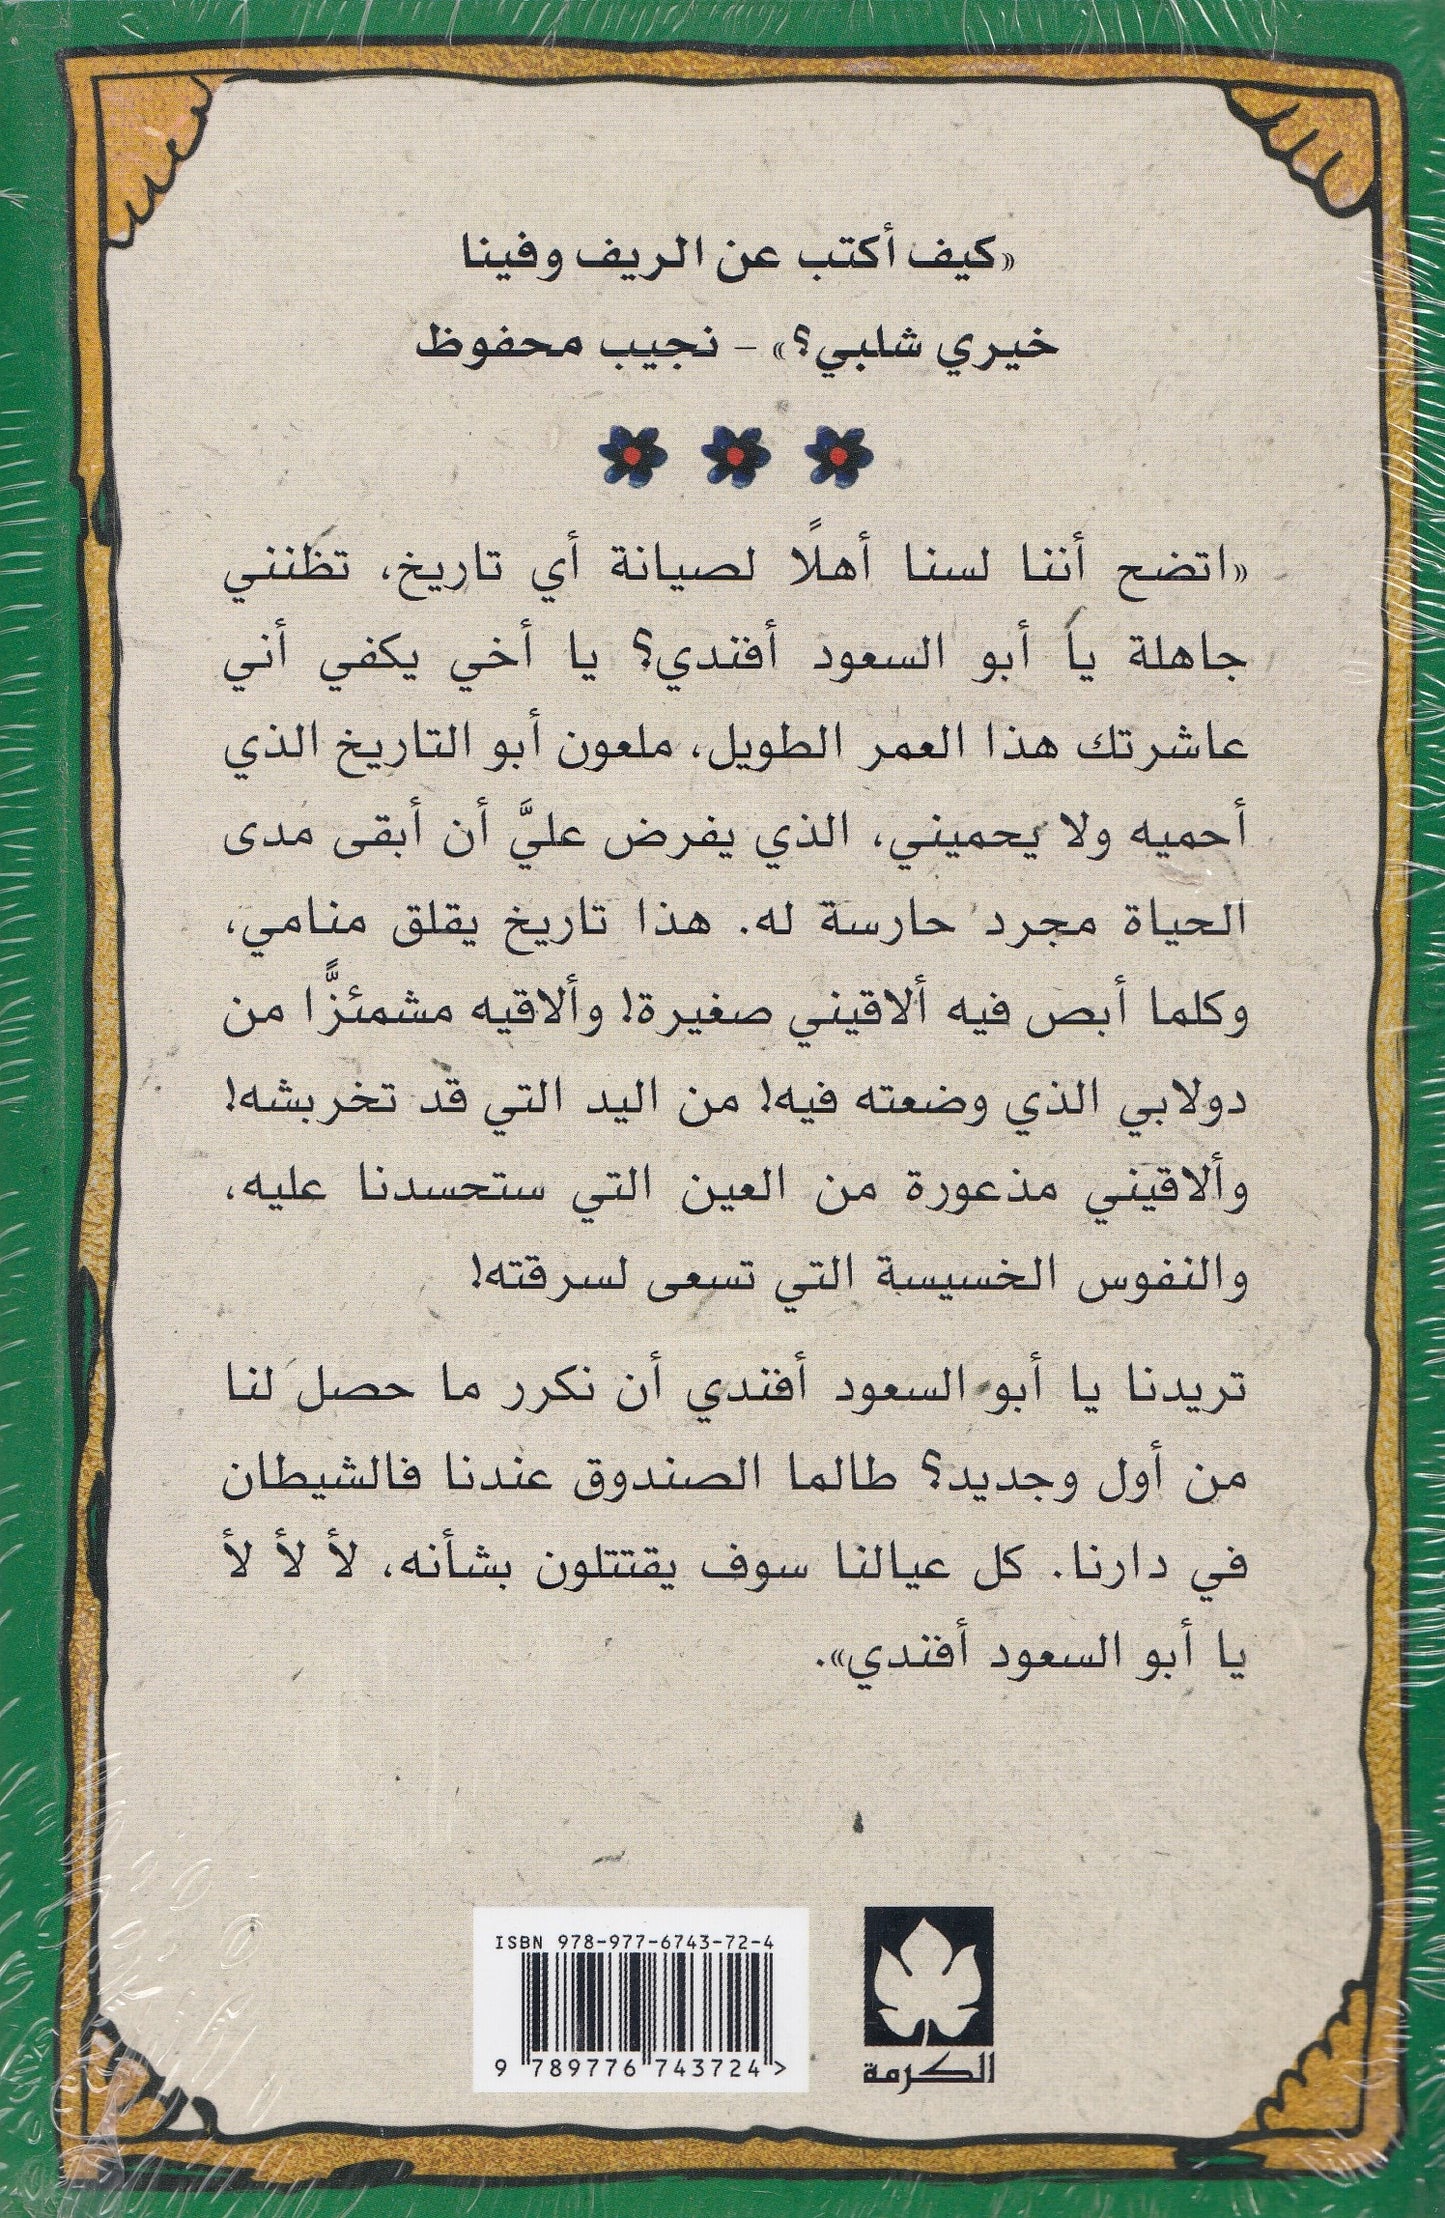 «كيف أكتب عن الريف وفينا
خيري شلبي؟» – نجيب محفوظ
«اتضح أننا لسنا أهلًا لصيانة أي تاريخ، تظنني
جاهلة يا أبو السعود أفندي؟ يا أخي يكفي أني
عاشرتك هذا العمر الطويل، ملعون أبو التاريخ الذي
أحميه ولا يحميني، الذي يفرض عليَّ أن أبقى مدى
الحياة مجرد حارسة له. هذا تاريخ يقلق منامي،
وكلما أبص فيه ألاقيني صغيرة! وألاقيه مشمئزًّا من
دولابي الذي وضعته فيه! من اليد التي قد تخربشه!
وألاقيني مذعورة من العين التي ستحسدنا عليه،
والنفوس الخسيسة التي تسعى لسرقته!
تريدنا يا أبو السعود أفندي أن نكرر ما حصل لنا
من أول وجديد؟ طالما الصندوق عندنا فالشيطان
في دارنا. كل عيالنا سوف يقتتلون بشأنه، لأ لأ لأ
يا أبو السعود أفندي».
ISBN 978-977-6743-72-4
9 789776 743724 >
الكرمة